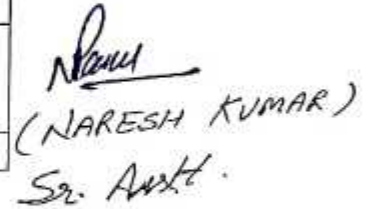 (NARESH KUMAR)
Sr. Asstt.